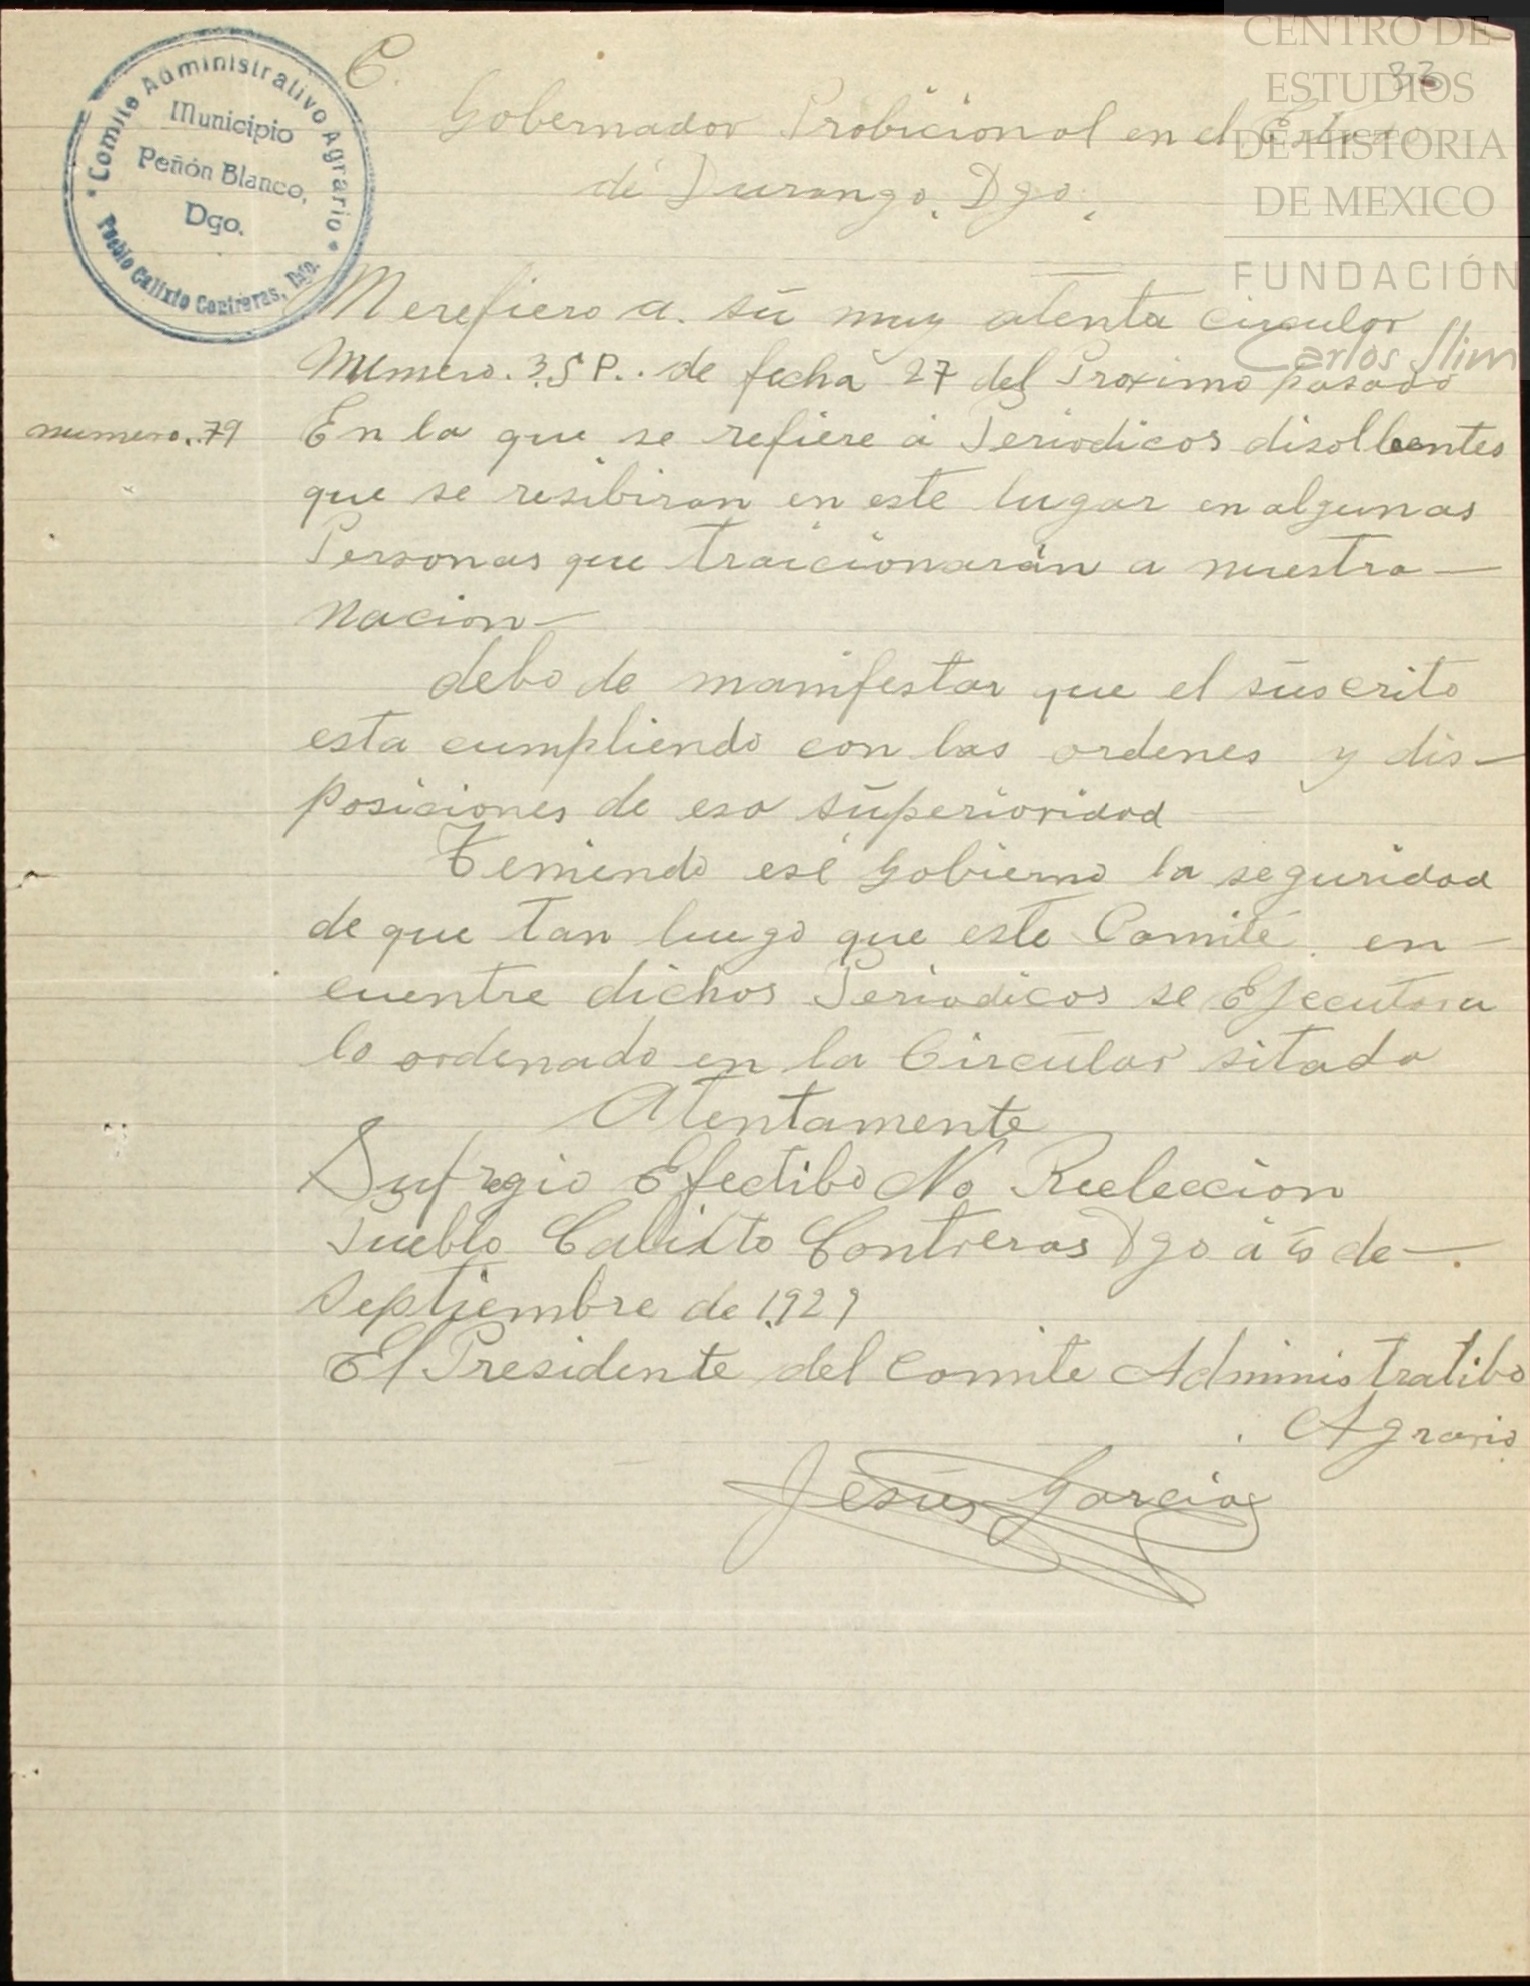 CENTRO DE
ESTUDIOS
DE HISTORIA
DE MEXICO
FUNDACIÓN
Carlos Slim
33
Comité Administrativo Agrario
Municipio
Peñón Blanco,
Dgo.
Pueblo Calixto Contreras, Dgo.
C.
Gobernador Probicional en el Estado
de Durango. Dgo.
Me refiero a. sú muy atenta circular
Numero. 3.S P.. de fecha 27 del Proximo pasado
numero..79
En la que se refiere a Periodicos disolbentes
que se resibiran en este lugar en algunas
Personas que traicionarán a nuestra —
Nacion —
debo de manifestar que el súscrito
esta cumpliendo con las ordenes y dis-
posiciones de esa súperioridad
Teniendo ese Gobierno la seguridad
de que tan luego que este Comité en-
cuentre dichos Periodicos se Ejecutara
lo ordenado en la Circúlar sitada
Atentamente
Sufregio Efectibo No Reeleccion
Pueblo Calixto Contreras Dgo a de —
Septiembre de 1929
El Presidente del Comite Administratibo
Agrario
Jesús Garcia